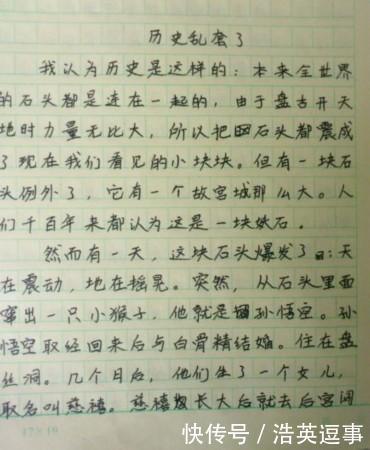 历史乱套了
我认为历史是这样的:本来全世界
的石头都是连在一起的,由于盘古开天
地时力量无比大,所以把石头都震成
了现在我们看见的小块块。但有一块石
头例外了,它有一个故宫城那么大。人
们千百年来都认为这是一块妖石。
然而有一天,这块石头爆发了:天
在震动,地在摇晃。突然,从石头里面
窜出一只小猴子,他就是孙悟空。孙
悟空取经回来后与白骨精结婚。住在盘
丝洞。几个月后,他们生了一个女儿,
取名叫慈禧。慈禧长大后就去后宫闯
17×19
快传号/浩英逗事